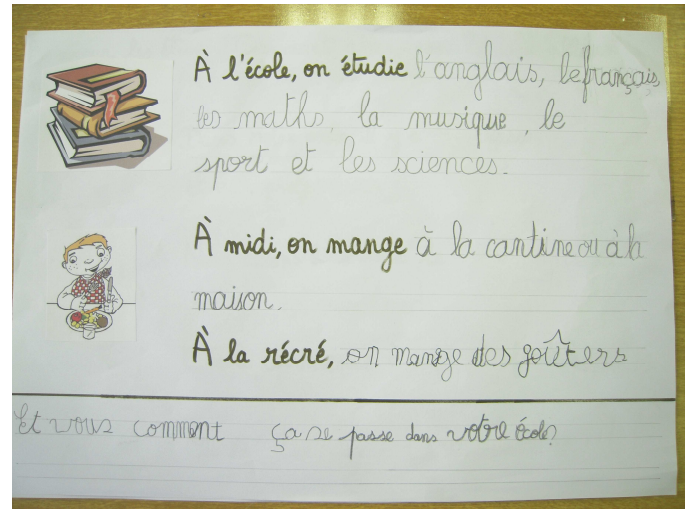 À l'école, on étudie l'anglais, le français,
les maths, la musique, le
sport et les sciences.
À midi, on mange à la cantine ou à la
maison.
À la récré, on mange des goûters
Et vous comment ça se passe dans votre école?